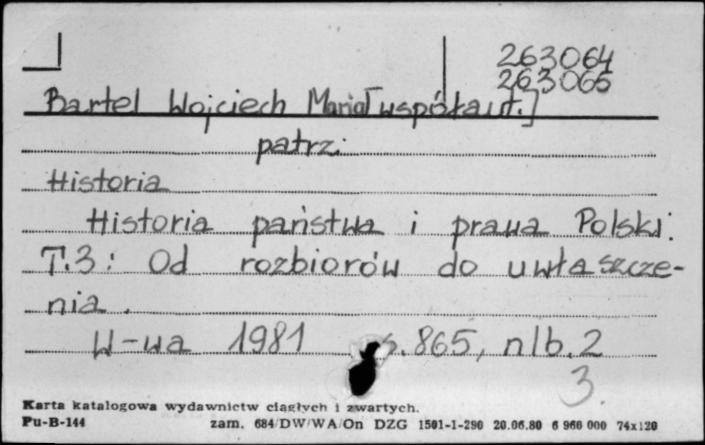 263064
263065
Bartel Wojciech Maria [współaut.]
patrz:
Historia
Historia państwa i prawa Polski.
T.3: Od rozbiorów do uwłaszcze-
nia.
W-wa 1981 s. 865, nlb. 2
3.
Karta katalogowa wydawnictw ciągłych i zwartych.
Pu-B-144 zam. 684/DW/WA/On DZG 1501-1-290 20.06.80 6 966 000 74x120